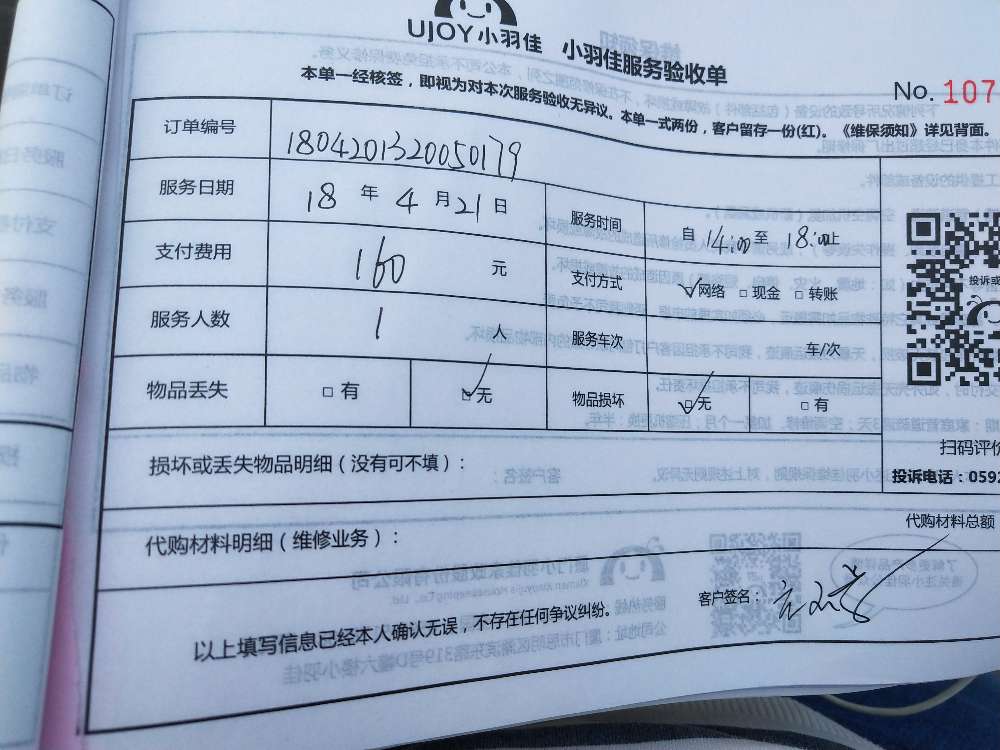 UJOY小羽佳 小羽佳服务验收单
本单一经核签，即视为对本次服务验收无异议。本单一式两份，客户留存一份(红)。《维保须知》详见背面。
No. 107
订单编号 1804201320050179
服务日期 18 年 4 月 21 日 服务时间 自 14:00 至 18:00 止
支付费用 160 元 支付方式 ☑网络 □现金 □转账
服务人数 1 人 服务车次 车/次
物品丢失 □有 ☑无 物品损坏 ☑无 □有
扫码评价
投诉电话：0592
损坏或丢失物品明细（没有可不填）：
代购材料总额
代购材料明细（维修业务）：
客户签名：
以上填写信息已经本人确认无误，不存在任何争议纠纷。